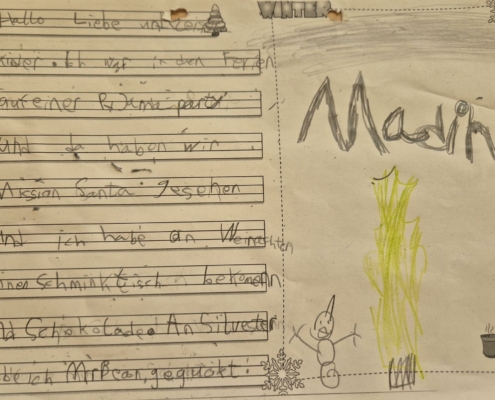 Hallo Liebe
kinder. Ich war in den Ferien
auf einer party
und da haben wir.
Mission Santa gesehen
und ich habe an Weinachten
inen Schminktisch bekomen
nd Schokolade. An Silvester
be ich MrBean, geguckt!
WINTER
Madih